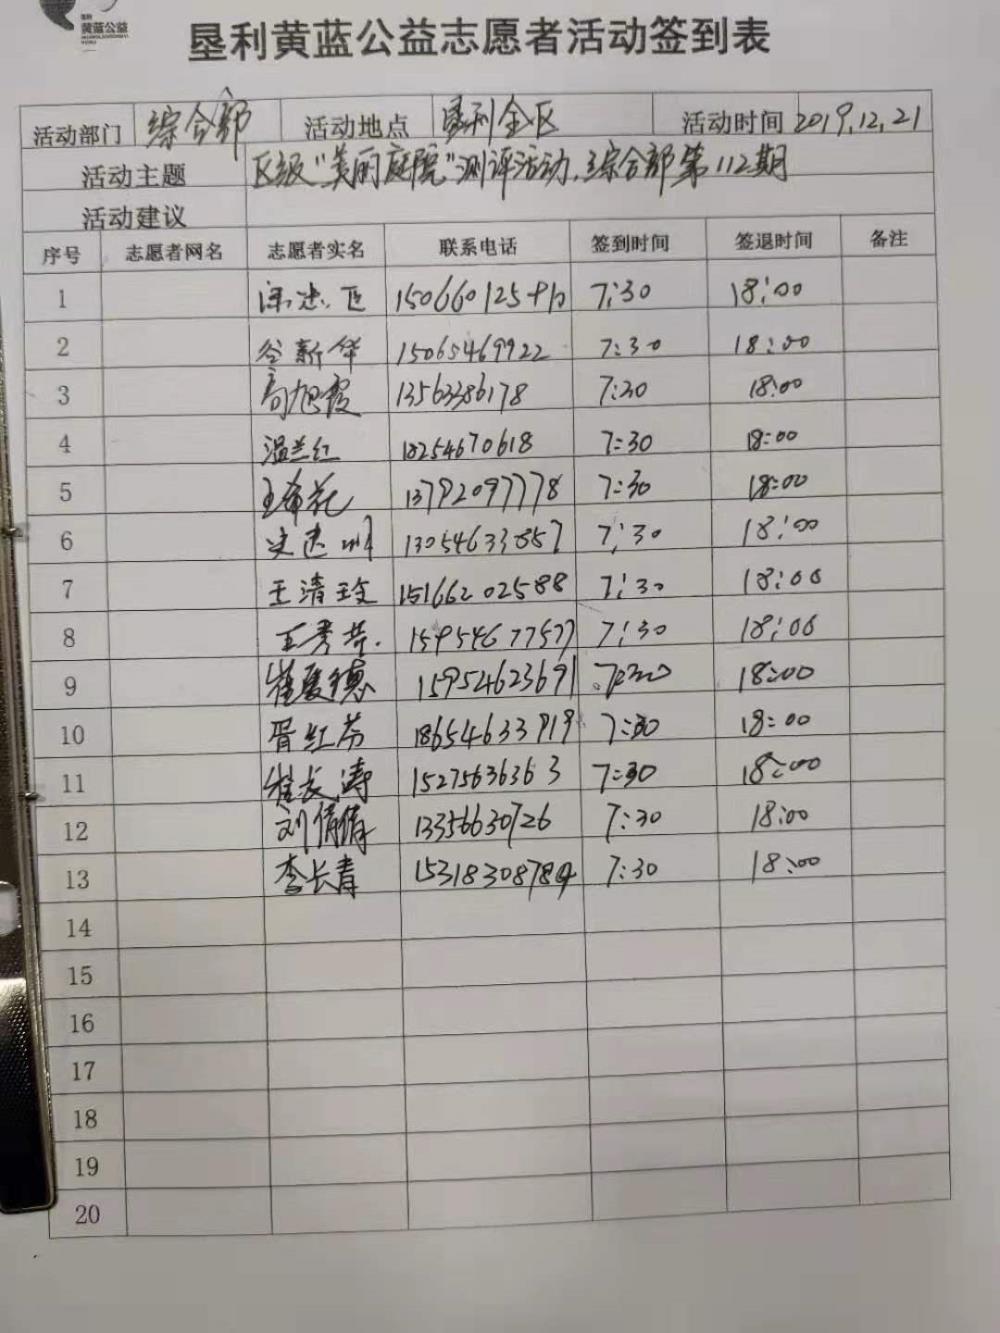 黄蓝公益
垦利黄蓝公益志愿者活动签到表
活动部门 综合部 活动地点 垦利全区 活动时间 2019.12.21
活动主题 区级“美丽庭院”测评活动.综合部第112期
活动建议
序号 志愿者网名 志愿者实名 联系电话 签到时间 签退时间 备注
1 7:30 18:00
2 谷新华 15065469922 7:30 18:00
3 高旭霞 13563386178 7:30 18:00
4 温兰红 18254670618 7:30 18:00
5 王希花 13792097778 7:30 18:00
6 13054633857 7:30 18:00
7 王清玫 15166202588 7:30 18:00
8 王秀芹 15954677577 7:30 18:00
9 崔爱德 159524623691 7:30 18:00
10 胥红芬 18654633919 7:30 18:00
11 崔长涛 15275636363 7:30 18:00
12 刘倩倩 13356630726 7:30 18:00
13 李长青 15318308784 7:30 18:00
14
15
16
17
18
19
20